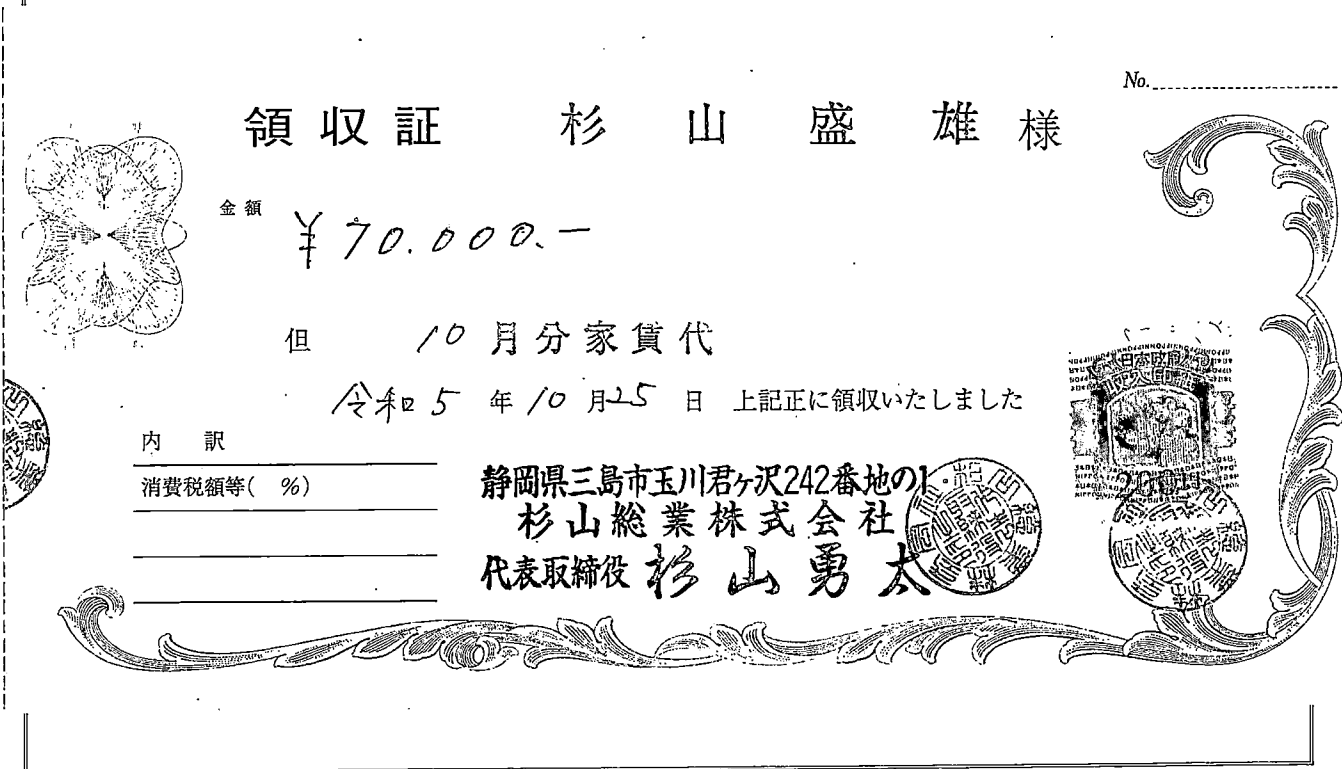 No.
領収証 杉山盛雄 様
金額
¥70.000.-
但 10月分家賃代
令和5年10月25日 上記正に領収いたしました
内訳
消費税額等( %)
静岡県三島市玉川君ヶ沢242番地の1
杉山総業株式会社
代表取締役 杉山勇太
日本政府
収入印紙
200